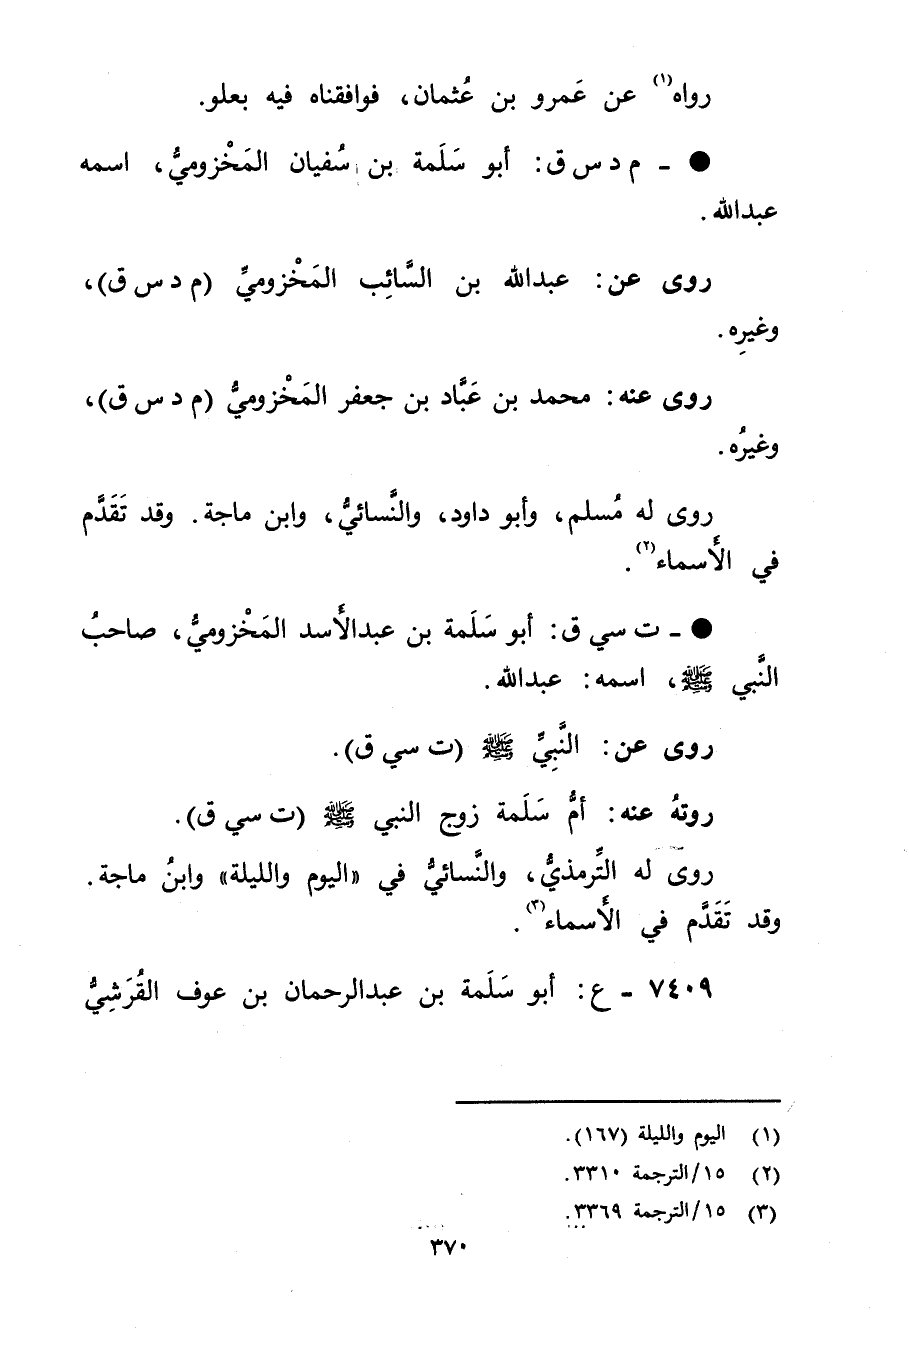 رواه(١) عن عَمرو بن عُثمان، فوافقناه فيه بعلو.
● ـ م د س ق: أبو سَلَمة بن سُفيان المَخْزوميُّ، اسمه
عبدالله.
روى عن: عبدالله بن السَّائِب المَخْزوميِّ (م د س ق)،
وغيرِه.
روى عنه: محمد بن عَبَّاد بن جعفر المَخْزوميُّ (م د س ق)،
وغيرُه.
روى له مُسلم، وأبو داود، والنَّسائيُّ، وابن ماجة. وقد تَقَدَّم
في الأَسماء(٢).
● ـ ت سي ق: أبو سَلَمة بن عبدالأَسد المَخْزوميُّ، صاحبُ
النَّبي ﷺ، اسمه: عبدالله.
روى عن: النَّبِيِّ ﷺ (ت سي ق).
روتهُ عنه: أمُّ سَلَمة زوج النبي ﷺ (ت سي ق).
روى له التِّرمذيُّ، والنَّسائيُّ في «اليوم والليلة» وابنُ ماجة.
وقد تَقَدَّم في الأَسماء(٣).
٧٤٠٩ ـ ع: أبو سَلَمة بن عبدالرحمان بن عوف القُرَشِيُّ
(١) اليوم والليلة (١٦٧).
(٢) ١٥/الترجمة ٣٣١٠.
(٣) ١٥/الترجمة ٣٣٦٩.
٣٧٠